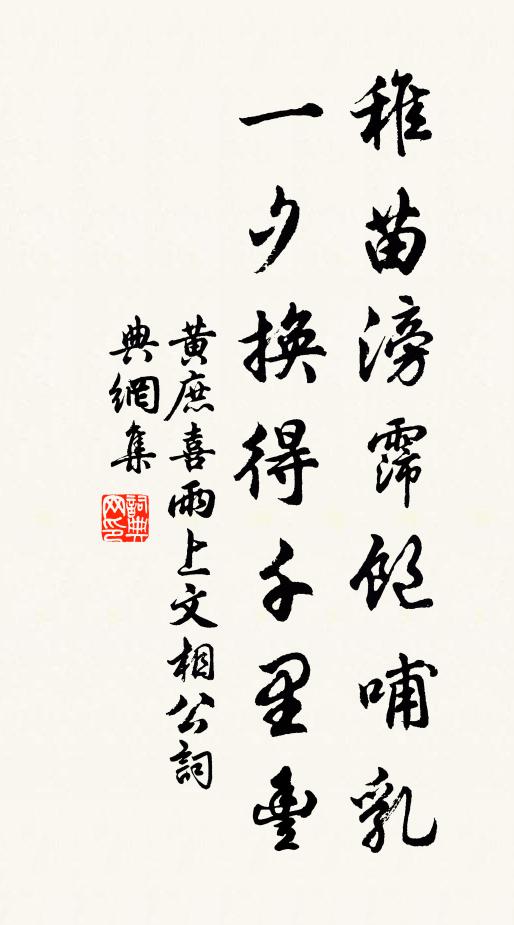 稚苗滂霈飽哺乳
一夕換得千里豐
黃庶喜雨上文相公詞
典網集
詞典網印